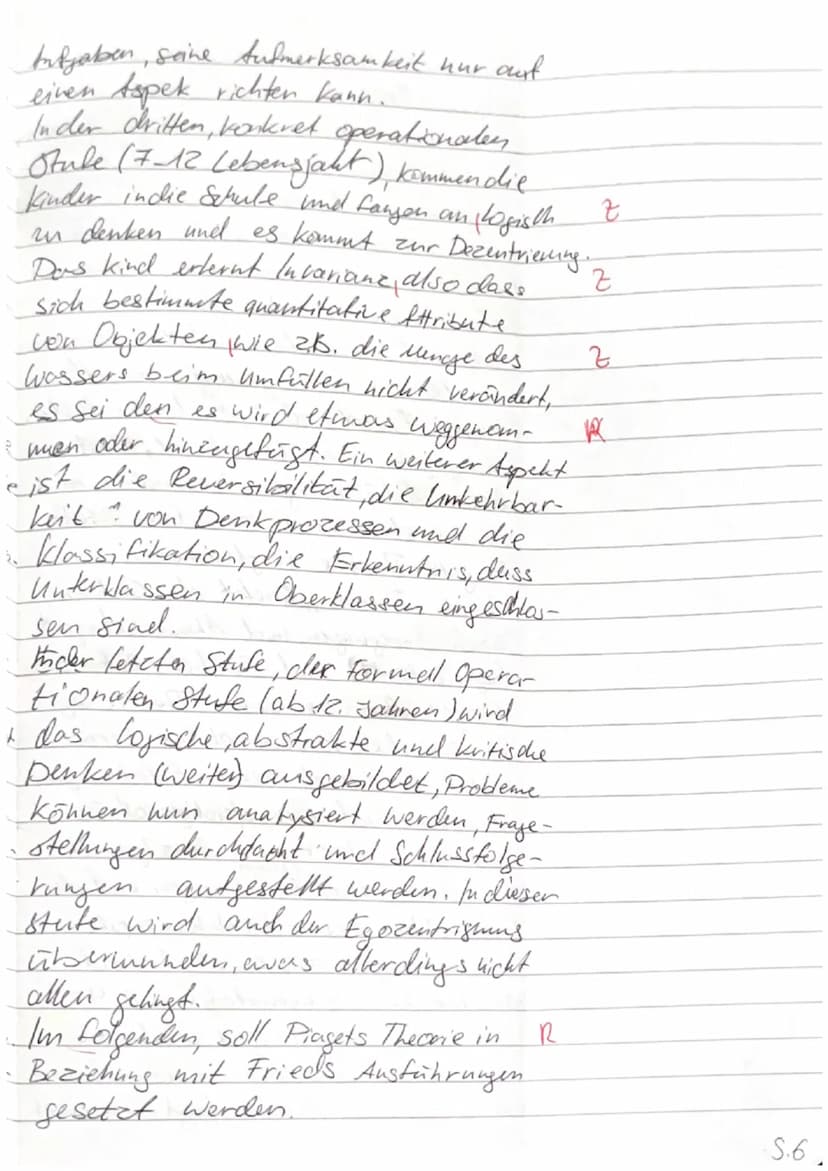 Aufgaben, seine Aufmerksamkeit nur auf
einen Aspek richten kann.
In der dritten, konkret operationalen
Stufe (7-12 Lebensjahr), kommen die
Kinder in die Schule und fangen an, logisch Z
zu denken und es kommt zur Dezentrierung.
Das Kind erlernt Invarianz, also dass Z
sich bestimmte quantitative Attribute
von Objekten, wie z.B. die Menge des Z
Wassers beim Umfüllen nicht verändert,
es sei den es wird etwas weggenom- R
men oder hinzugefügt. Ein weiterer Aspekt
ist die Reversibilität, die Umkehrbar-
keit von Denkprozessen und die
Klassifikation, die Erkenntnis, dass
Unterklassen in Oberklassen eingeschlos-
sen sind.
In der letzten Stufe, der formell opera-
tionalen Stufe (ab 12. Jahren) wird
das logische, abstrakte und kritische
Denken (weiter) ausgebildet, Probleme
können nun analysiert werden, Frage-
stellungen durchdacht und Schlussfolge-
rungen aufgestellt werden. In dieser
Stufe wird auch der Egozentrismus
überwunden, was allerdings nicht
allen gelingt.
Im folgenden, soll Piagets Theorie in R
Beziehung mit Frieds Ausführungen
gesetzt werden.
S.6